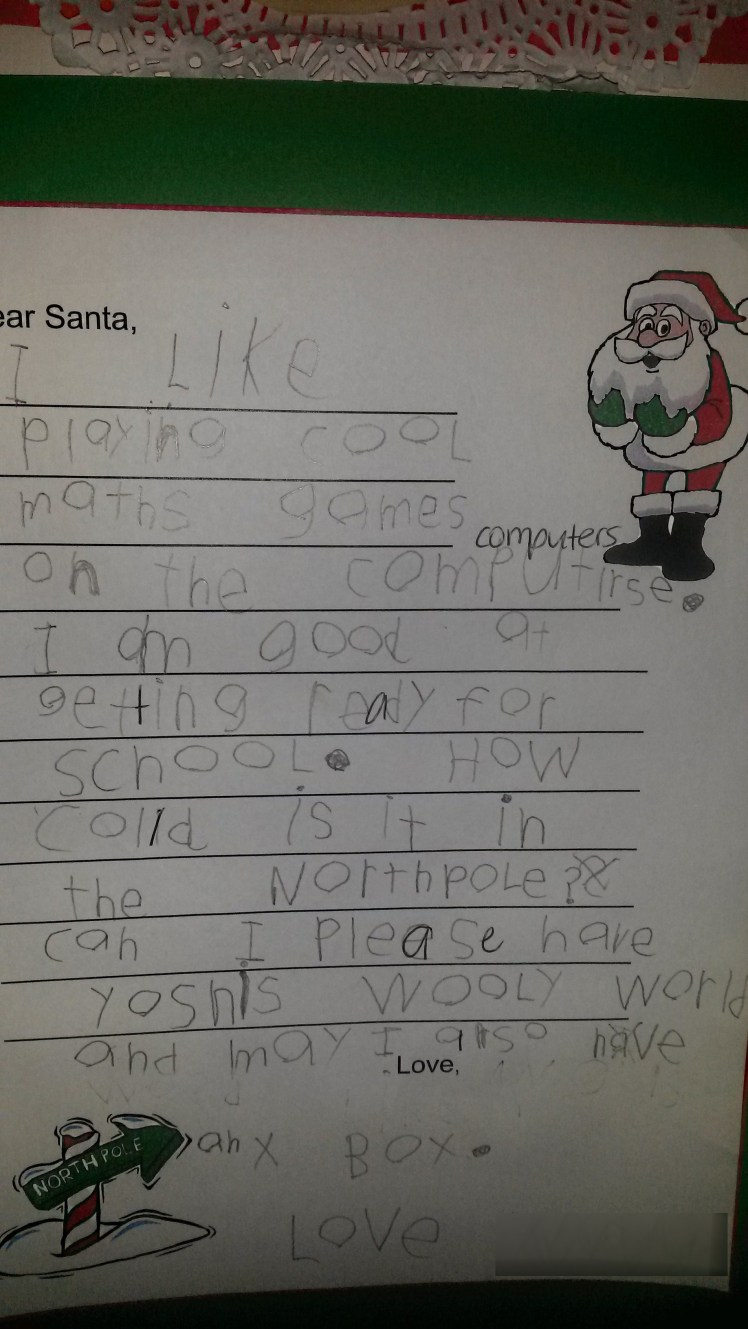 ear Santa,
I Like
playing cool
maths games
computers
on the computirse.
I am good at
getting ready for
school. How
colld is it in
the Northpole?
can I please have
yoshis wooly world
and may I also have
Love,
NORTH POLE
an X Box.
Love